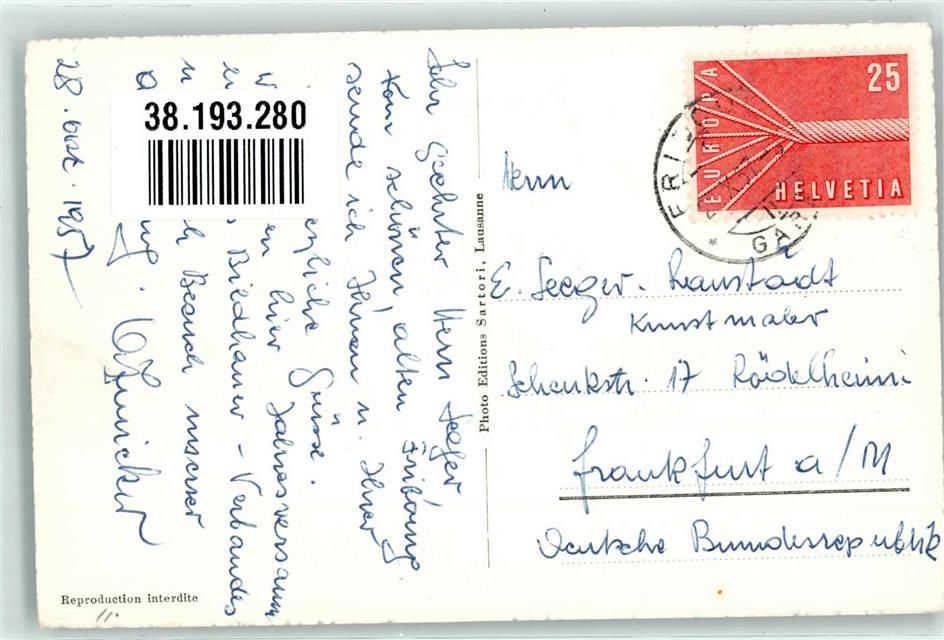 28. Okt. 1957
Sehr geehrter Herr Seeger
Vom schönen, alten Fribourg
sende ich Ihnen u. Ihrer
herzliche Grüsse.
en hier Jahresversamm
s Bildhauer-Verbandes
Besuch unserer
38.193.280
Photo Editions Sartori, Lausanne
Reproduction interdite
EUROPA
25
HELVETIA
GARE
Herrn
E. Seeger. Lanstadt
Kunstmaler
Schenkstr. 17 Rödelheim
Frankfurt a/M
Deutsche Bundesrepublik